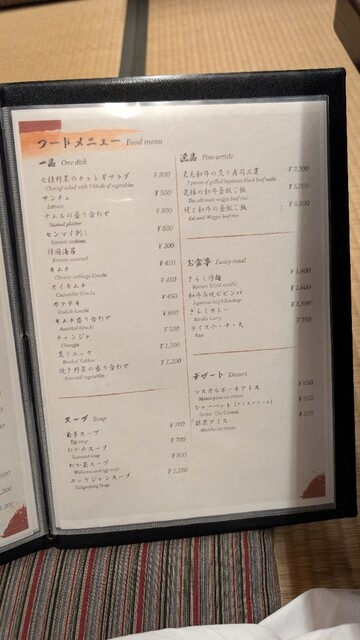 フードメニュー Food menu
一品 One dish
七種野菜のチョレギサラダ ¥800
Choregi salad with 7 kinds of vegetables
サンチュ ¥500
Lettuce
ナムルの盛り合わせ ¥800
Namul platter
センマイ刺し ¥800
Senmai sashimi
韓国海苔 ¥200
Korean seaweed
キムチ ¥450
Chinese cabbage kimchi
オイキムチ ¥450
Cucumber kimchi
カクテキ ¥450
Radish kimchi
キムチ盛り合わせ ¥890
Assorted kimchi
チャンジャ ¥500
Changja
炙りユッケ ¥1,500
Broiled Yukhoe
焼き野菜の盛り合わせ ¥1,200
Assorted vegetables
スープ Soup
玉子スープ ¥700
Egg soup
わかめスープ ¥700
Seaweed soup
わか玉スープ ¥800
Wakame and egg soup
ユッケジャンスープ ¥1,100
Yukgaejang Soup
逸品 Fine article
黒毛和牛の炙り寿司三貫 ¥2,200
3 pieces of grilled Japanese black beef sushi
究極の和牛釜飯ご飯 ¥5,000
The ultimate wagyu beef rice
鰻と和牛の釜飯ご飯 ¥6,800
Eel and Wagyu beef rice
お食事 Eating meal
きらく冷麺 ¥1,400
和牛石焼ビビンバ ¥1,600
Japanese beef bibimbap
きらくカレー ¥1,300
Kiraku Curry
ライス小・中・大
Rice
デザート Dessert
マスカルポーネアイス
Mascarpone ice cream
シャーベット(アイスクリーム)
Sorbet (Ice Cream)
抹茶アイス
Matcha ice cream